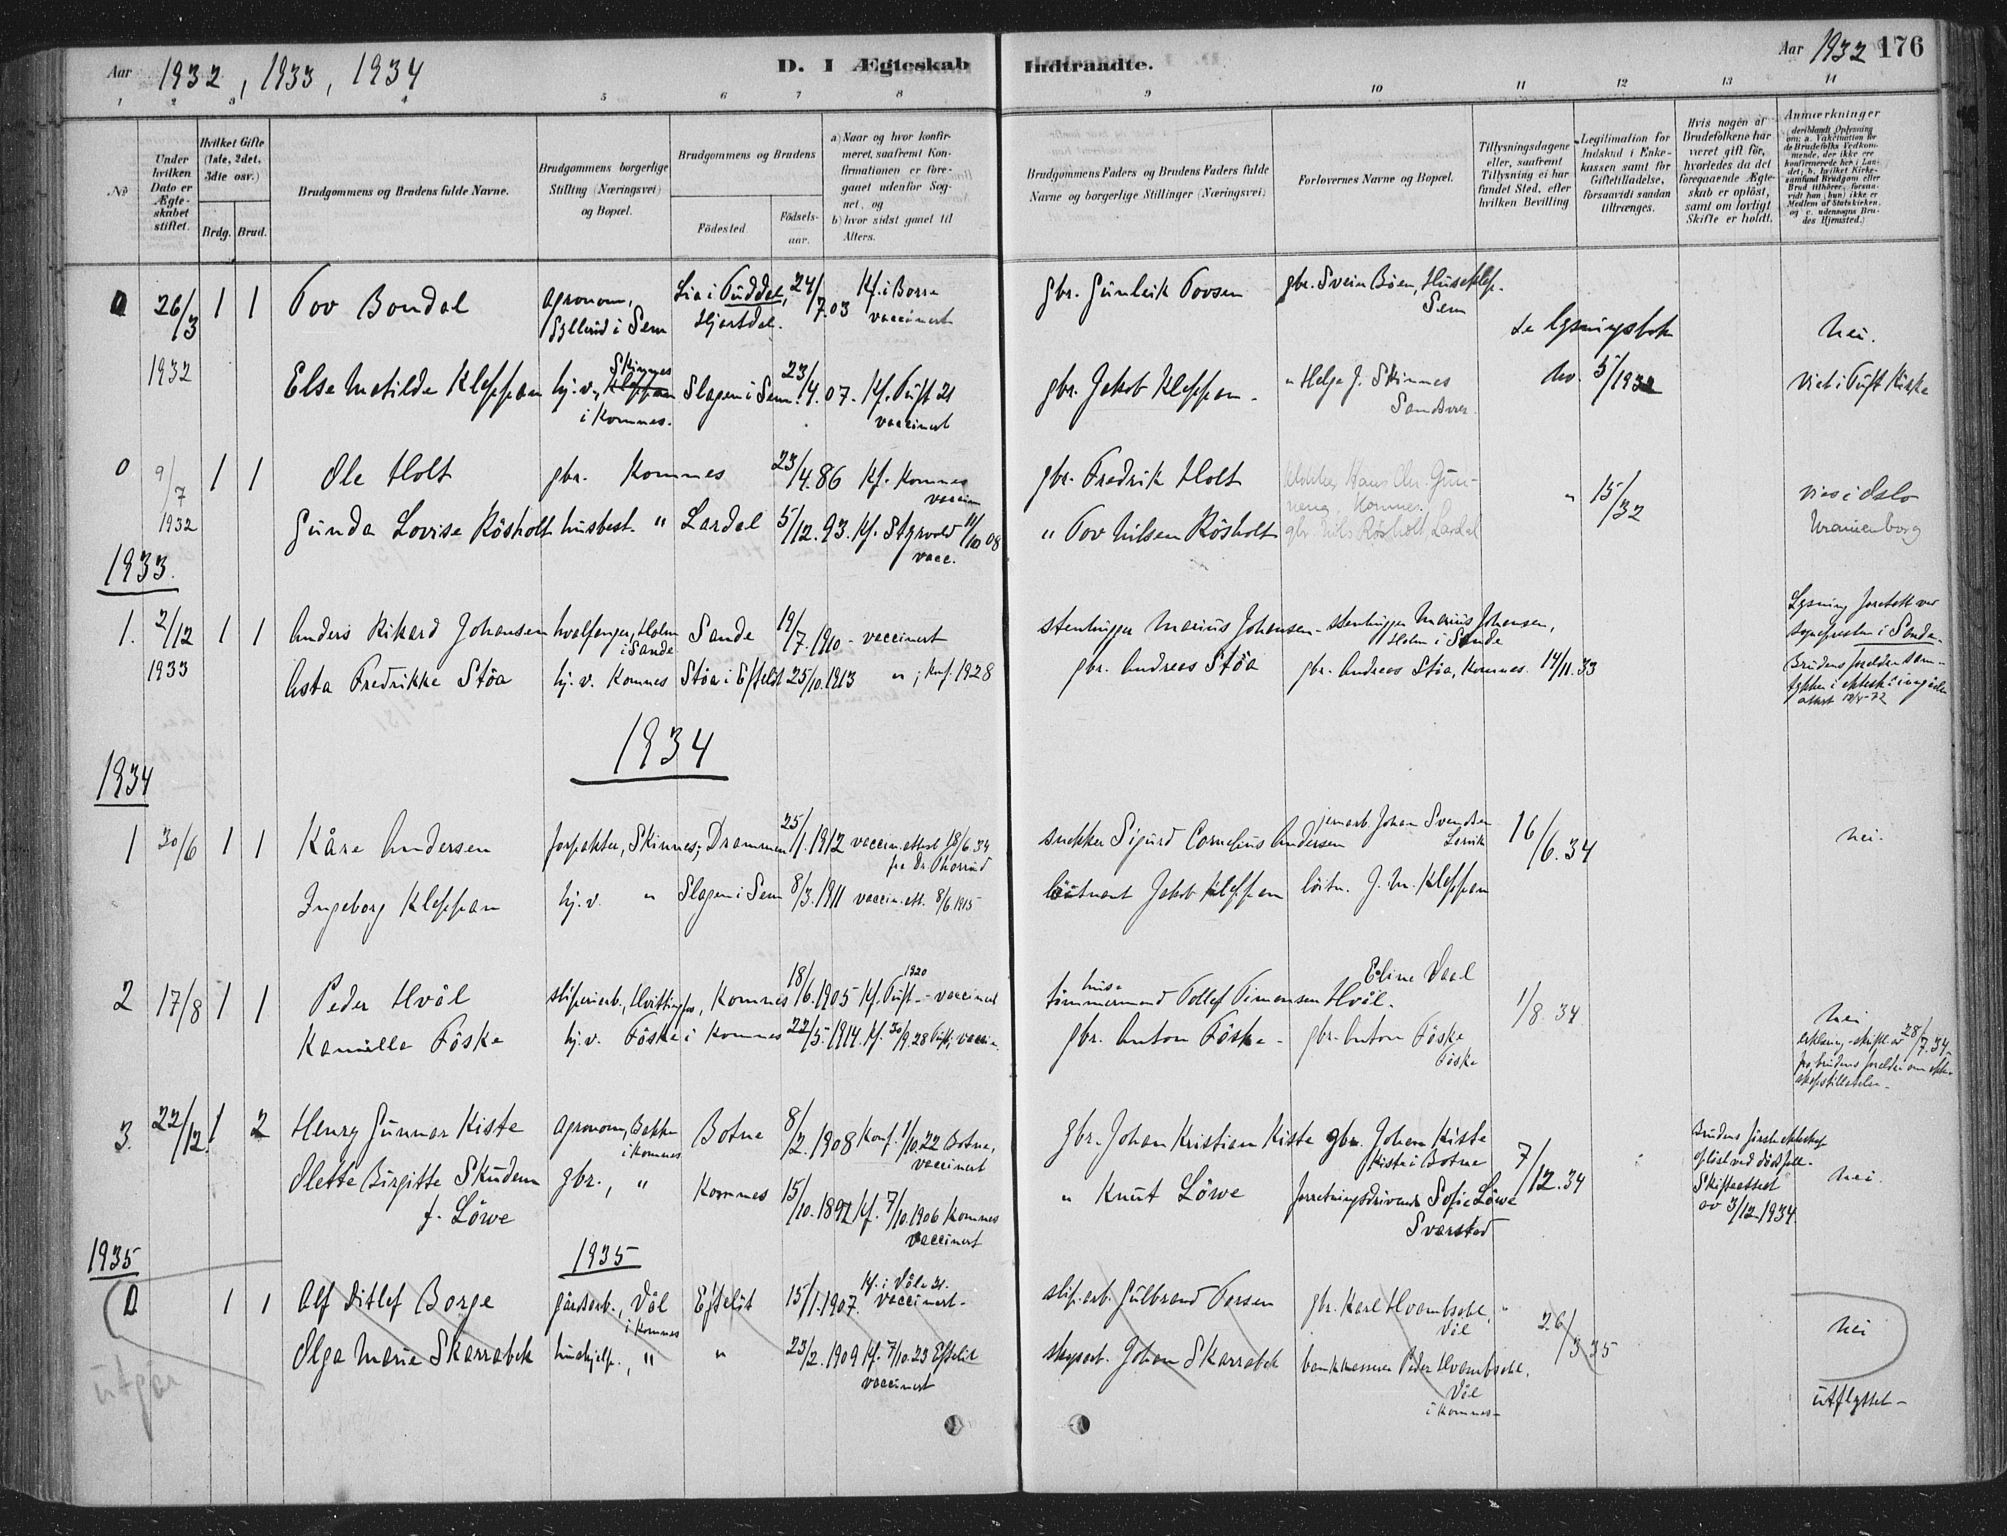 Aar 1932, 1933, 1934
D. I Ægteskab
Indtraadte.
Aar 1932 176
1 2 3 4 5 6 7 8 9 10 11 12 13 14
No
Under hvilken Dato er Ægteskabet stiftet.
Hvilket Gifte (1ste, 2det, 3die osv.)
Brdg. Brud.
Brudgommens og Brudens fulde Navne.
Brudgommens borgerlige Stilling (Næringsvei) og Bopæl.
Brudgommens og Brudens
Fødested.
Fødselsaar.
a) Naar og hvor konfirmeret, saafremt Konfirmationen er foregaaet udenfor Sognet, og
b) hvor sidst gaaet til Alters.
Brudgommens Faders og Brudens Faders fulde Navne og borgerlige Stillinger (Næringsvei)
Forlovernes Navne og Bopæl.
Tillysningsdagene eller, saafremt Tillysning ei har fundet Sted, efter hvilken Bevilling
Legitimation for Indskud i Enkekassen samt for Giftetilladelse, forsaavidt saadan tiltrænges.
Hvis nogen af Brudefolkene har været gift før, hvorledes da det foregaaende Ægteskab er opløst, samt om lovligt Skifte er holdt.
Anmærkninger
0 26/3 1 1 Tov Bondal agronom, Gyllerud i Sem Lia i Tuddal, Hjartdal. 24/7.03 Kf. i Borre vaccinert gbr. Gunleik Tovsen gbr. Svein Bøen, Sem se lysningsbok nei.
1932 Else Matilde Kleppan hj.v., Skinnes i Komnes. Slagen i Sem 23/4.07. Kf. Tuft 21 vaccinert gbr. Jakob Kleppan. " Helge J. Skinnes Sandsvær. no. 5/1932 Viet i Tuft Kirke
0 9/7 1932 1 1 Ole Holt gbr. Komnes 23/4.86 Kf. Komnes vaccin gbr. Fredrik Holt Komnes. " 15/32 Vies i Oslo
Gunda Lovise Røsholt husbest. " Lardal 5/12.93. Kf. Styrvold 11/10 08 vacc. " Tov Nilsen Røsholt gbr. Nils Røsholt Lardal Uranienborg
1933.
1. 2/12 1933 1 1 Anders Rikard Johansen hvalfanger, Holm i Sande Sande 19/7.1910 - vaccinert stenhugger Marius Johansen - stenhugger Marius Johansen, Holm i Sande Lysning foretatt ved sognepresten i Sande.
Asta Fredrikke Støa hj. v. Komnes Støa i Efteløt 25/10.1913 " ; Knf. 1928 gbr. Andreas Støa gbr. Andreas Støa, Komnes. 14/11.33 Brudens foreldre
1934
1934
1 30/6 1 1 Kåre Andersen forpakter, Skinnes; Drammen 25/1.1912 vaccin. attest 18/6.34 fra Dr. Thorrud snekker Sigurd Cornelius Andersen jernarb. Johan Svendsen Larvik 16/6.34 nei.
Ingeborg Kleppan hj. v. " Slagen i Sem 8/3.1911 vaccin. att. 8/6.1915 løitnant Jakob Kleppan løitn. J. M. Kleppan
2 17/8 1 1 Peder Hvål sliperiarb., Komnes 18/6.1905 Kf. Tuft 1920 - vaccinert hus tømmermand Tollef Simonsen Hvål. Eline Vaal 1/8.34 nei
Kamilla Føske hj. v. Føske i Komnes 22/5.1914. Kf. 30/9.28 Tuft; vaccin. gbr. Anton Føske - gbr. Anton Føske Føske erklæring - skriftl. av 28/7.34 fra brudens foreldre om
3. 22/12. 1 2 Henry Gunnar Kiste agronom, Bakke i Komnes Botne 8/2.1908 Konf. 1/10.22 Botne, vaccinert gbr. Johan Kristian Kiste gbr. Johan Kiste Kiste i Botne 7/12.34 Brudens første ekteskap opløst ved dødsfall. Skifteattest av 3/12.1934 nei.
Olette Birgitte Skudem f. Løwe gbr., " Komnes 15/10.1892 Kf. 7/10.1906 Komnes vaccinert " Knut Løwe forretningsdrivende Sofie Løwe Svarstad
1935 1935
0 1 1 Alf Ditlef Borge gårdsarb., Vål i Komnes Efteløt 15/1.1907. Kf. i Våle 21. vaccinert - sliparb. Gulbrand Torsen gbr. Karl Hvambsahl, Vål 26/3 35 nei
Olga Marie Skarrabek hushjelp., " " 23/2.1909 Kf. 7/10.23 Efteløt vaccinert skogsarb. Johan Skarrabek bankkasserer Peder Hvambsahl, Vål i Komnes - utflyttet -
utgår